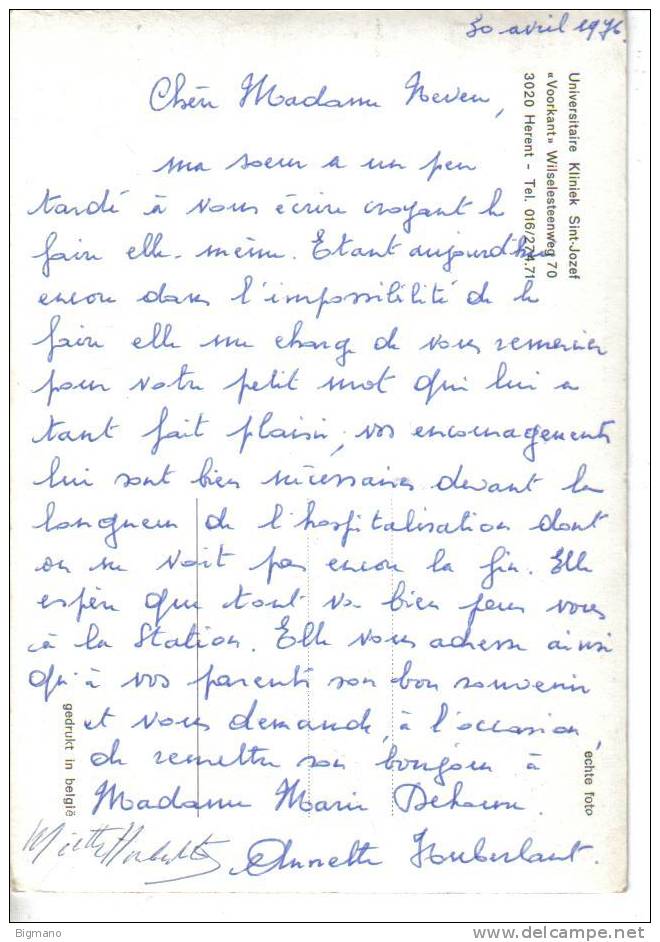 30 avril 1976.
Universitaire Kliniek Sint-Jozef
«Voorkant» Wilselesteenweg 70
3020 Herent - Tel. 016/2274.71
Chère Madame Neven,
ma soeur a un peu
tardé à vous écrire croyant le
faire elle-même. Etant aujourd'hui
encore dans l'impossibilité de le
faire elle me charge de vous remercier
pour votre petit mot qui lui a
tant fait plaisir, vos encouragements
lui sont bien nécessaires devant la
longueur de l'hospitalisation dont
on ne voit pas encore la fin. Elle
espère que tout va bien pour vous
à la Station. Elle vous adresse ainsi
qu'à vos parents son bon souvenir
et vous demande, à l'occasion,
de remettre son bonjour à
Madame Marie Dehaene.
Annette Huberlant.
gedrukt in belgië
echte foto
Bigmano
delcampe.net